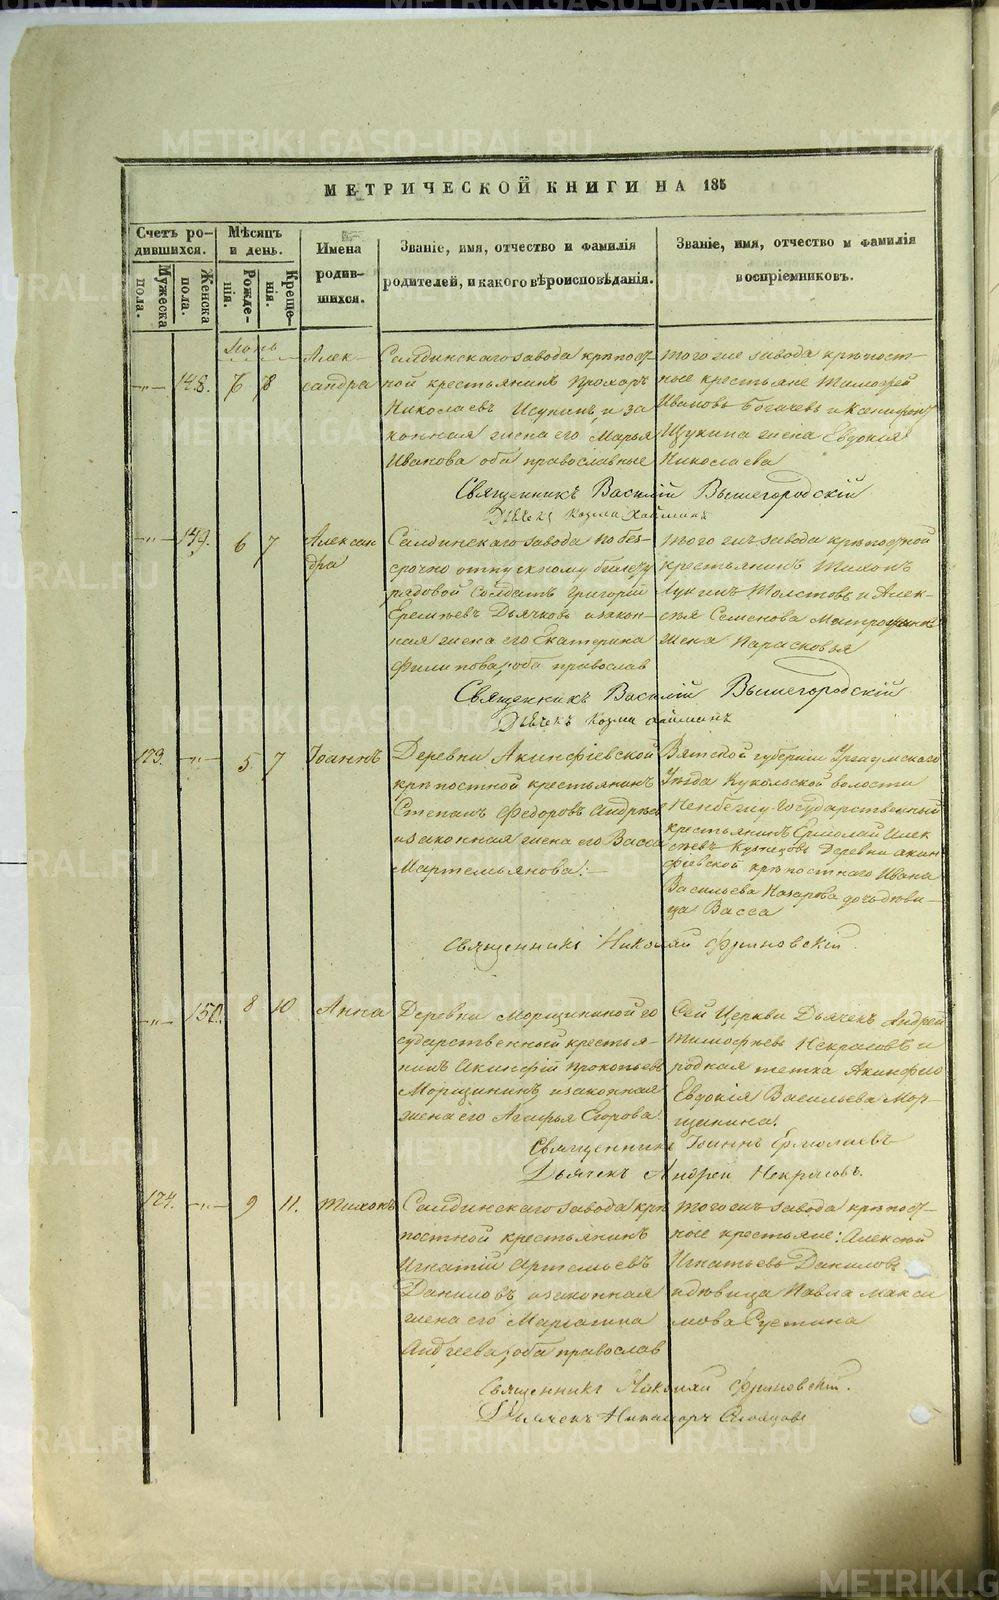 METRIKI.GASO-URAL.RU
МЕТРИЧЕСКОЙ КНИГИ НА 185
Счетъ ро-
дившихся.
Мужеска
пола.
Женска
пола.
Мѣсяцъ
и день.
Рожде-
нія.
Креще-
нія.
Имена
родив-
шихся.
Званіе, имя, отчество и фамилія
родителей, и какого вѣроисповѣданія.
Званіе, имя, отчество и фамилія
воспріемниковъ.
Іюнь
148. 7 8
Алек-
сандра
Салдинскаго завода крѣпост
ной крестьянинъ Прохоръ
Николаевъ и за
конная жена его Марья
Иванова оба православные
того же завода крѣпост-
ные крестьяне Тимофей
Ивановъ Богачевъ и
Щукина жена Евдокія
Николаева
Священникъ Василій Вышегородскій
Дьячекъ Козма
149. 6 7
Алексан
дра
Салдинскаго завода по без-
срочно отпускному билету
рядовой Солдатъ Григорій
Дьячковъ и закон-
ная жена его Екатерина
Филипова, оба православ
того жъ завода крѣпостной
крестьянинъ Тихонъ
Толстовъ и Алек-
сѣя Семенова
жена Парасковья
Священникъ Василій Вышегородскій
Дьячекъ Козма
173. 5 7
Іоаннъ
Деревни Акинфіевской
крѣпостной крестьянинъ
Степанъ Федоровъ
и законная жена его Васса
Мартемьянова.
Вятской губерніи Уржумскаго
Уѣзда Кукольской волости
Государственный
крестьянинъ Ермолай Алек
сѣевъ Кузнецовъ Деревни Акин
фіевской крѣпостнаго Ивана
Васильева Назарова дочь дѣви-
ца Васса
Священникъ Николай
150. 8 10
Анна
Деревни Морщининой го
сударственный крестья-
нинъ Акинфій Прокопьевъ
Морщининъ и законная
жена его Агафья Егорова
Сей Церкви Дьячекъ Андрей
Тимофѣевъ Некрасовъ и
родная тетка Акинфію
Евдокія Васильева Мор-
щинина.
Священникъ Іоаннъ Ермолаевъ
Дьячекъ Андрей Некрасовъ.
174. 9 11.
Тихонъ
Салдинскаго завода крѣ
постной крестьянинъ
Игнатій Артемьевъ
Даниловъ и законная
жена его
Андреева, оба православ
того жъ завода крѣпост-
ные крестьяне: Алексѣй
Игнатьевъ Даниловъ
и дѣвица Павла Макси
мова
Священникъ Николай
Дьячекъ Никаноръ